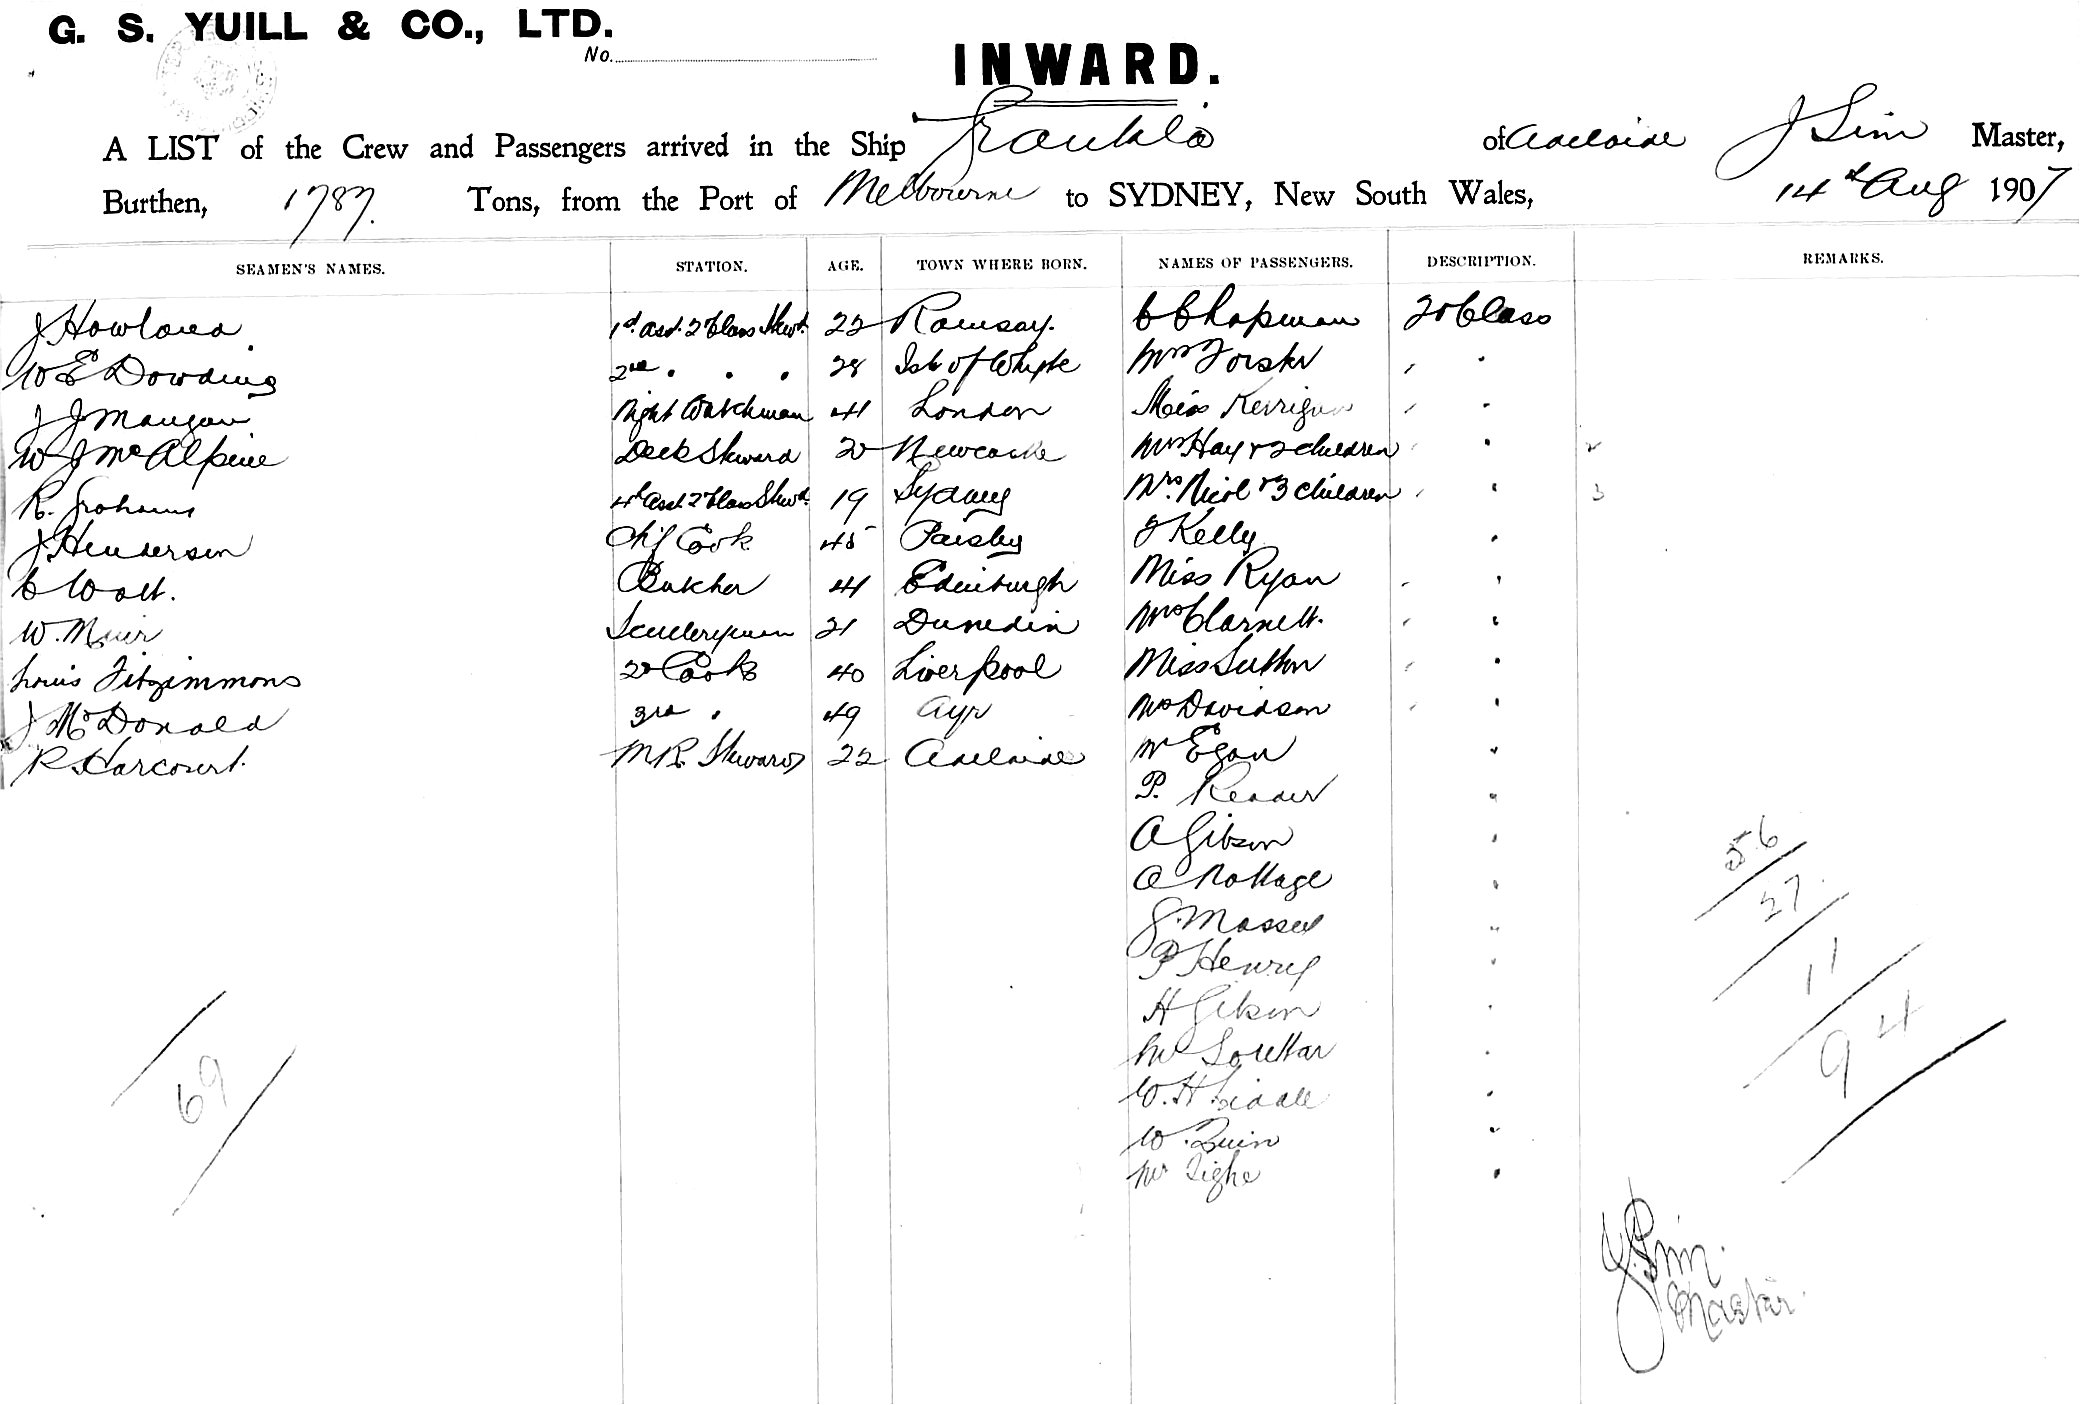 G. S. YUILL & CO., LTD.
No.
INWARD.
A LIST of the Crew and Passengers arrived in the Ship Grantala of Adelaide J Sim Master,
Burthen, 1787. Tons, from the Port of Melbourne to SYDNEY, New South Wales, 14th Aug 1907
SEAMEN'S NAMES. STATION. AGE. TOWN WHERE BORN. NAMES OF PASSENGERS. DESCRIPTION. REMARKS.
J Howland 1st Asst. 2 Class Stwd. 22 Ramsay. C Chapman 2d Class
W E Dowding 2nd " " " 28 Isle of Whyte Mrs Forster " "
J J Mangan Night Watchman 41 London Miss Kerrigan " "
W J McAlpine Deck Steward 20 Newcastle Mrs Hay & 2 children " " 2
R. Grahams 4th Asst. 2 Class Stwd. 19 Sydney Mrs. Nicol & 3 children " " 3
J Henderson Chief Cook 45 Paisley J Kelly "
C Watt. Butcher 41 Edinburgh Miss Ryan " "
W. Muir Sculleryman 21 Dunedin Mrs Clarnett. " "
Louis Fitzsimmons 2d Cook 40 Liverpool Miss Sutton " "
J McDonald 3rd " 49 Ayr Mrs Davidson " "
R Harcourt. M.R. Steward 22 Adelaide Mr Egan "
P. Reader "
A Gibson "
A Nottage "
G. Massed "
P Henry "
H Gibson "
Mr Souttar "
W. H Liddle "
W. Quin "
Mr Tighe "
56
27
11
94
69
J. Sim.
Master.